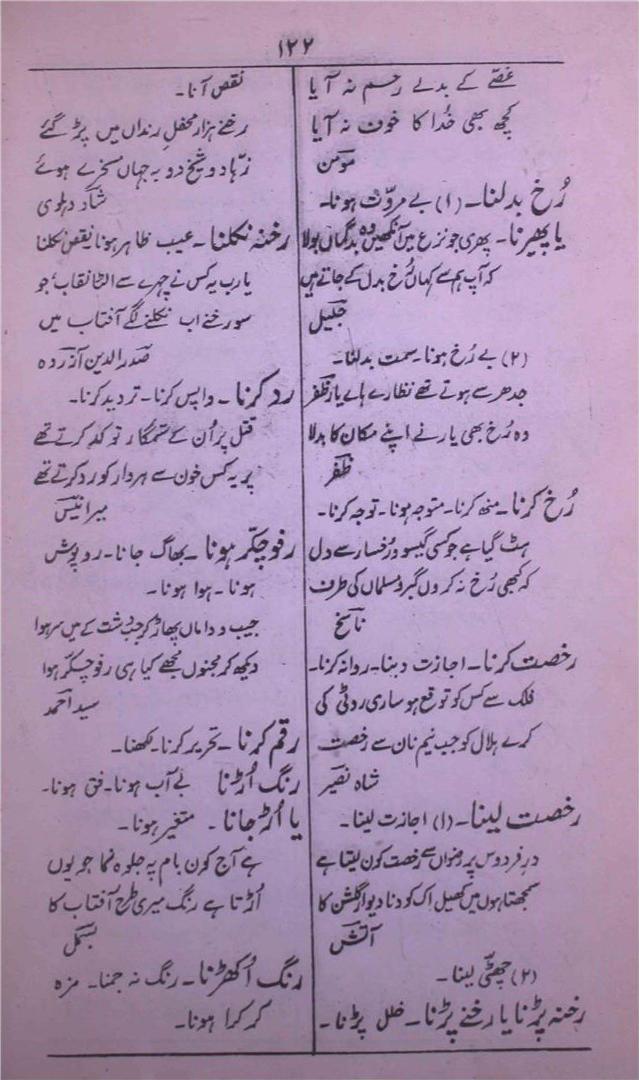 ۱۲۲
غصّے کے بدلے رحم نہ آیا
کچھ بھی خُدا کا خوف نہ آیا
مومنؔ
رُخ بدلنا۔ (۱) بے مروّت ہونا۔
یا پھیرنا۔ پھری جو نزع میں آنکھیں وہ بدگماں بولا
کہ آپ ہم سے کہاں رُخ بدل کے جاتے ہیں
جلیلؔ
(۲) بے رُخ ہونا۔ سمت بدلنا۔
جدھر سے ہوتے تھے نظارے ہائے یار ظفرؔ
وہ رُخ بھی یار نے اپنے مکان کا بدلا
ظفرؔ
رُخ کرنا۔ منھ کرنا۔ متوجہ ہونا۔ توجہ کرنا۔
ہٹ گیا ہے جو کسی گیسو و رُخسار سے دل
کہ کبھی رُخ نہ کروں گبر و مسلماں کی طرف
ناسخؔ
رخصت کرنا۔ اجازت دینا۔ روانہ کرنا۔
فلک سے کس کو توقع ہو ساری روٹی کی
کرے ہلال کو جب نیم نان سے رخصت
شاہ نصیرؔ
رخصت لینا۔ (۱) اجازت لینا۔
درِ فردوس پر رضواں سے رخصت کون لیتا ہے
سمجھتا ہوں میں کھیل اک کودنا دیوار گلشن کا
آتشؔ
(۲) چھٹّی لینا۔
رخنہ پڑنا یا رخنے پڑنا۔ خلل پڑنا۔
نقص آنا۔
رخنے ہزار محفلِ رنداں میں پڑ گئے
زہّاد و شیخ دو بہ جہاں مسخرے ہوئے
شاد دہلوی
رخنہ نکلنا۔ عیب ظاہر ہونا۔ نقص نکلنا
یارب یہ کس نے چہرے سے الٹا نقاب جو
سو رخنے اب نکلنے لگے آفتاب میں
صدر الدین آزردہ
رد کرنا۔ واپس کرنا۔ تردید کرنا۔
قتل پر اُن کے ستمگار تو کد کرتے تھے
پر یہ کس خون سے ہر وار کو رد کرتے تھے
میر انیسؔ
رفو چکّر ہونا۔ بھاگ جانا۔ روپوش
ہونا۔ ہوا ہونا۔
جیب و داماں پھاڑ کر جب دشت کے میں سر ہوا
دیکھ کر مجنوں مجھے کیا ہی رفو چکّر ہوا
سید احمد
رقم کرنا۔ تحریر کرنا۔ لکھنا۔
رنگ اُڑنا بے آب ہونا۔ فق ہونا۔
یا اُڑ جانا۔ متغیر ہونا۔
ہے آج کون بام پہ جلوہ نما جو یوں
اُڑتا ہے رنگ میری طرح آفتاب کا
بسملؔ
رنگ اُکھڑنا۔ رنگ نہ جمنا۔ مزہ
کرکرا ہونا۔